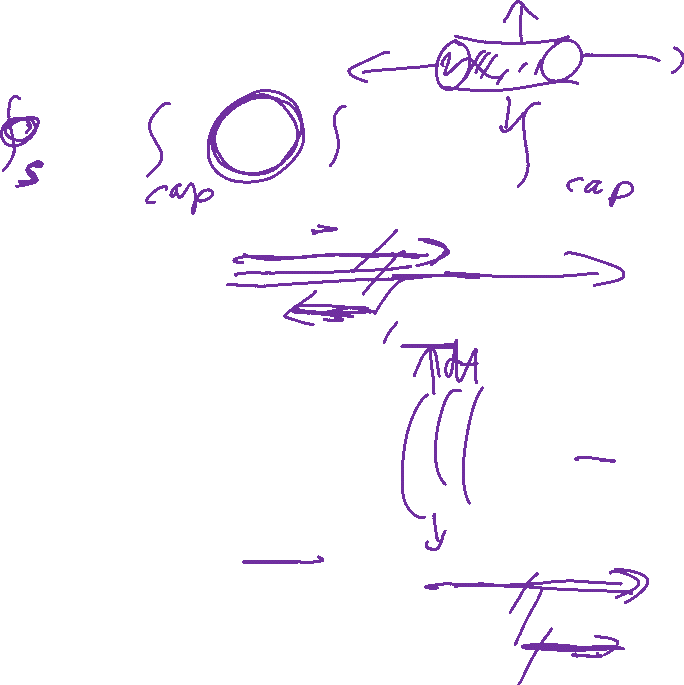 S
cap
cap
dA